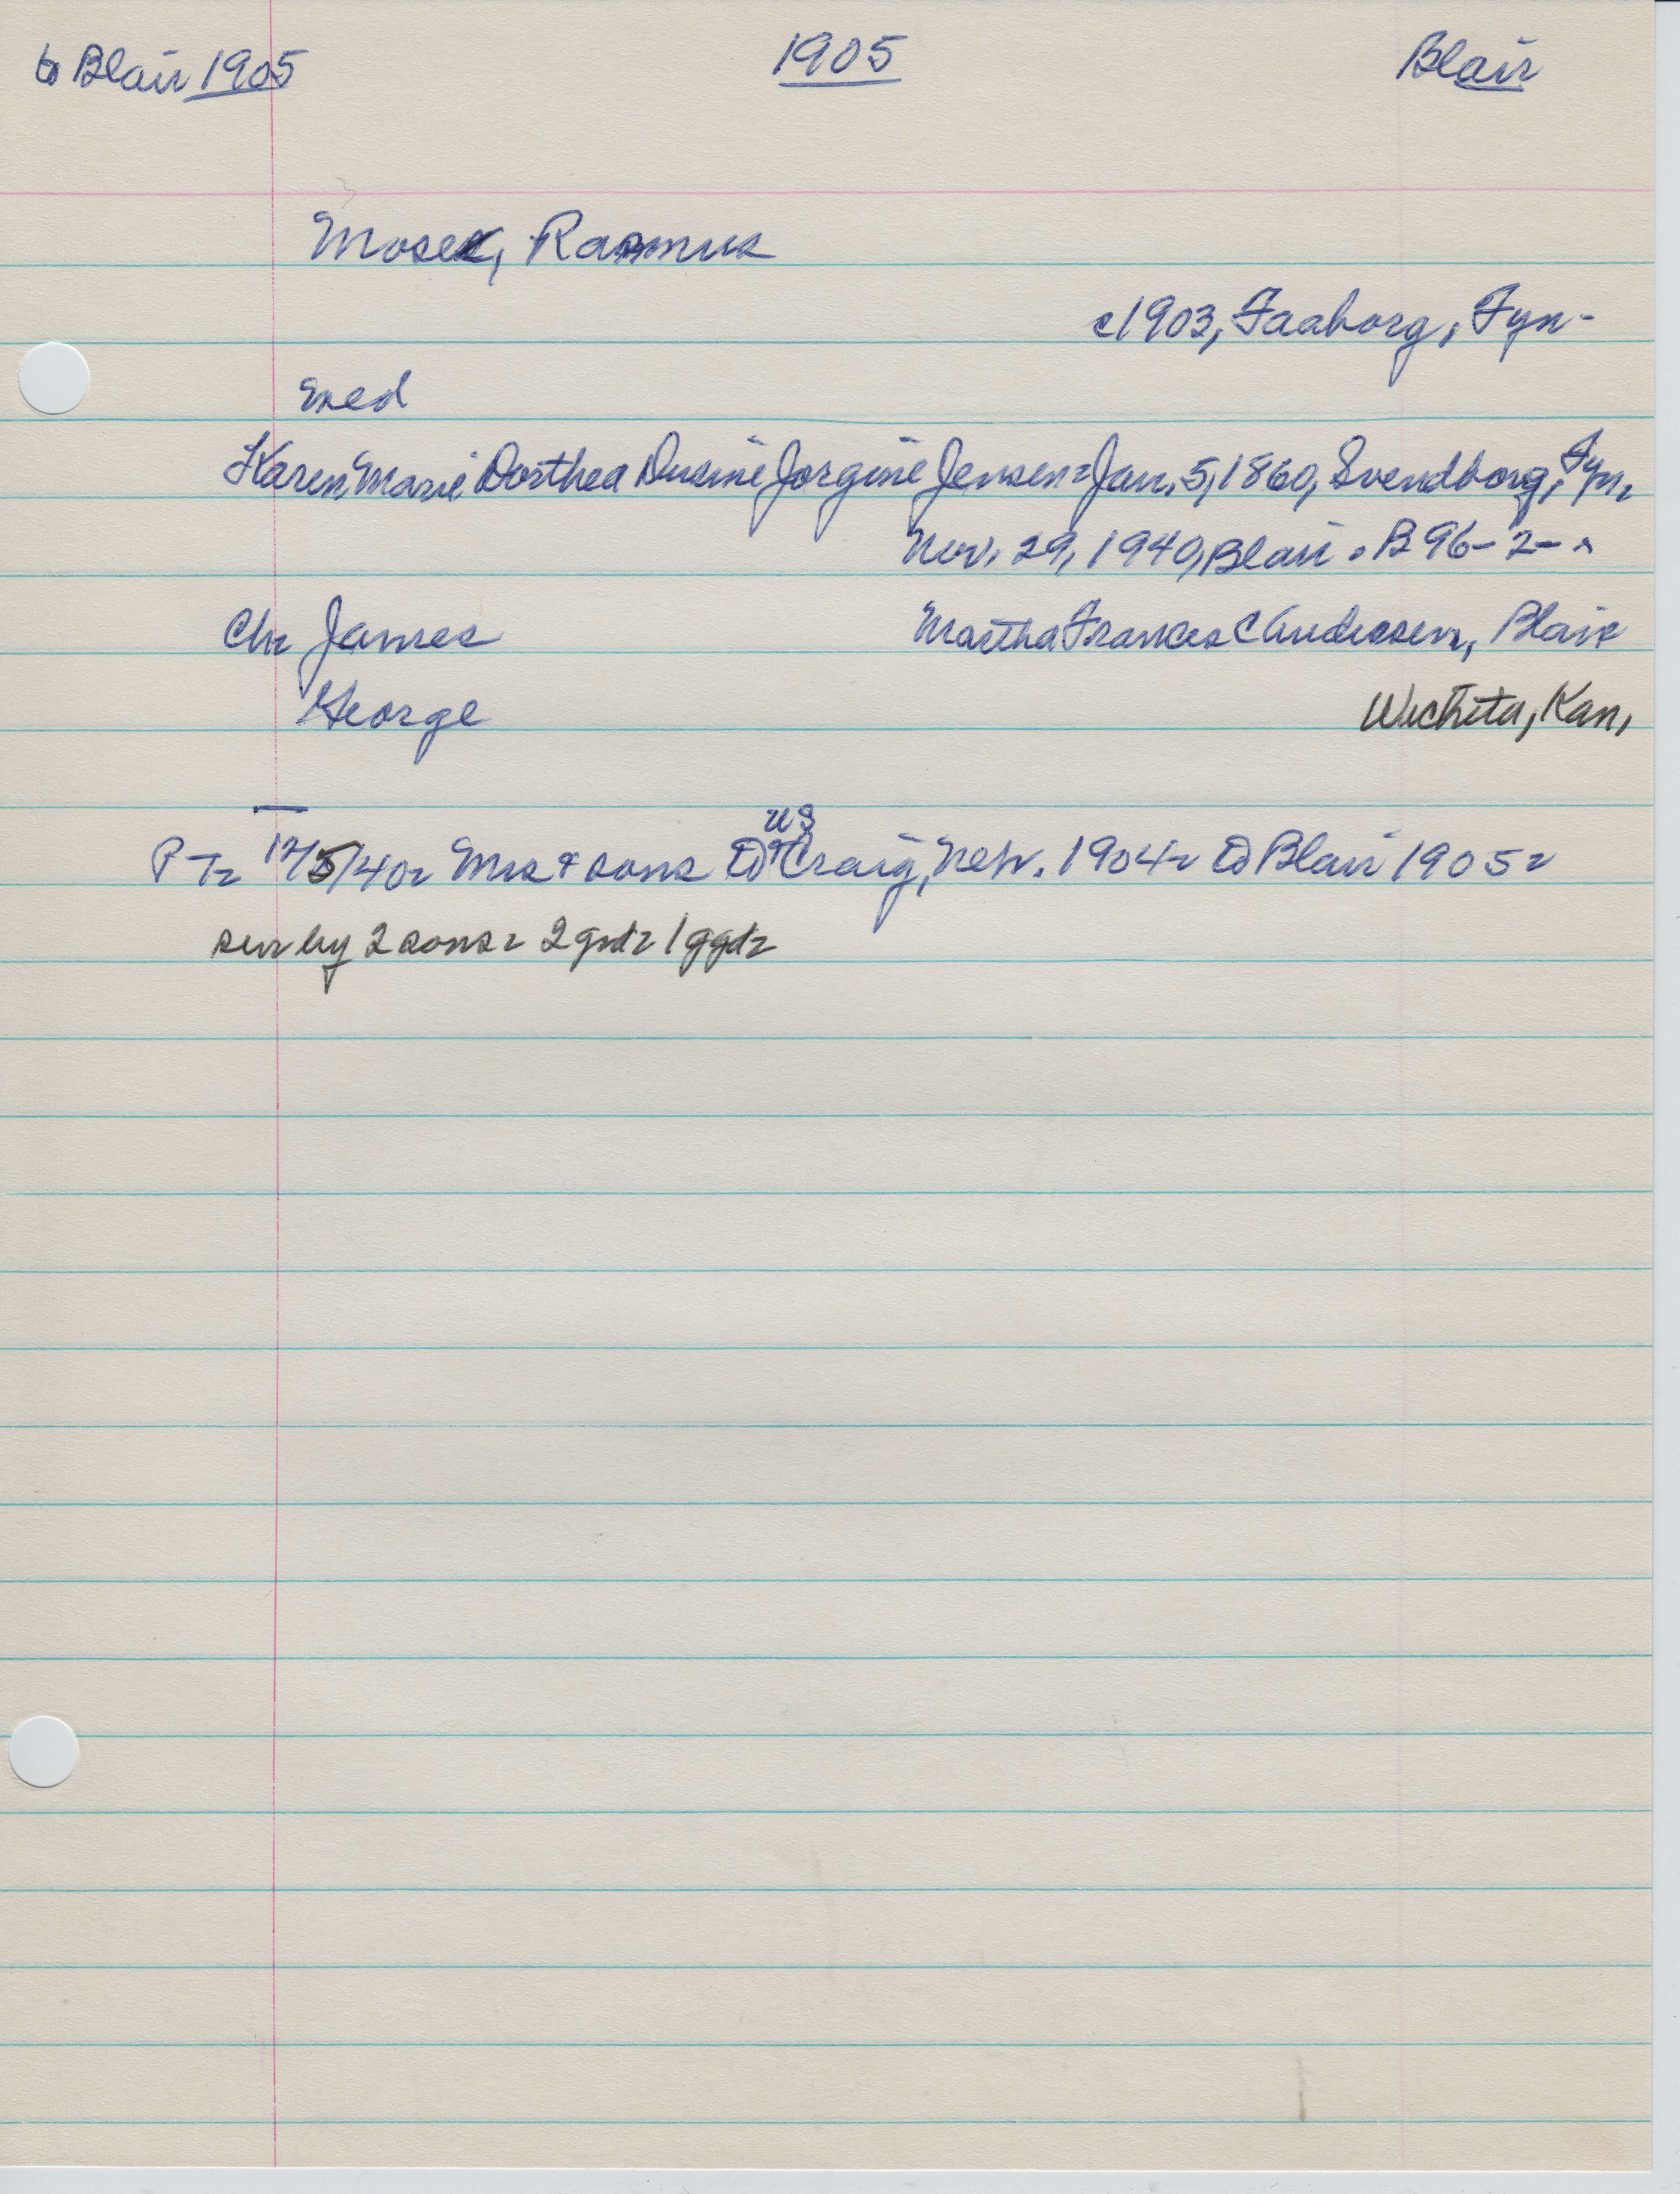 to Blair 1905 1905 Blair
Mose, Rasmus
c1903, Faaborg, Fyn-
Med
Karen Marie Dorthea Dusine Jorgine Jensen - Jan. 5, 1860, Svendborg, Fyn,
Nov. 29, 1940, Blair. B 96-2-
Chr James Martha Frances Andersen, Blair
George Wichita, Kan,
P T- 12/5/40- Mrs + sons to US + Craig, Neb. 1904- to Blair 1905-
sur by 2 sons- 2 grd- 1 ggd-